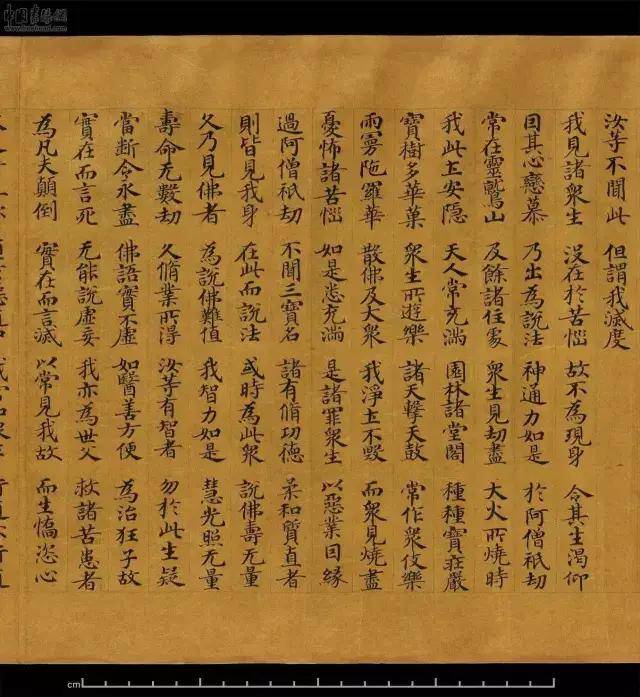 汝等不聞此 但謂我滅度
我見諸衆生 没在於苦惱 故不為現身 令其生渴仰
因其心戀慕 乃出為說法 神通力如是 於阿僧祇劫
常在靈鷲山 及餘諸住處 衆生見劫盡 大火所燒時
我此土安隱 天人常充滿 園林諸堂閣 種種寶莊嚴
寶樹多華菓 衆生所遊樂 諸天擊天鼓 常作衆伎樂
雨曼陁羅華 散佛及大衆 我淨土不毀 而衆見燒盡
憂怖諸苦惱 如是悉充滿 是諸罪衆生 以惡業因緣
過阿僧祇劫 不聞三寶名 諸有脩功德 柔和質直者
則皆見我身 在此而說法 或時為此衆 說佛壽无量
久乃見佛者 為說佛難值 我智力如是 慧光照无量
壽命无數劫 久脩業所得 汝等有智者 勿於此生疑
當斷令永盡 佛語實不虛 如醫善方便 為治狂子故
實在而言死 无能說虛妄 我亦為世父 救諸苦患者
為凡夫顛倒 實在而言滅 以常見我故 而生憍恣心
cm